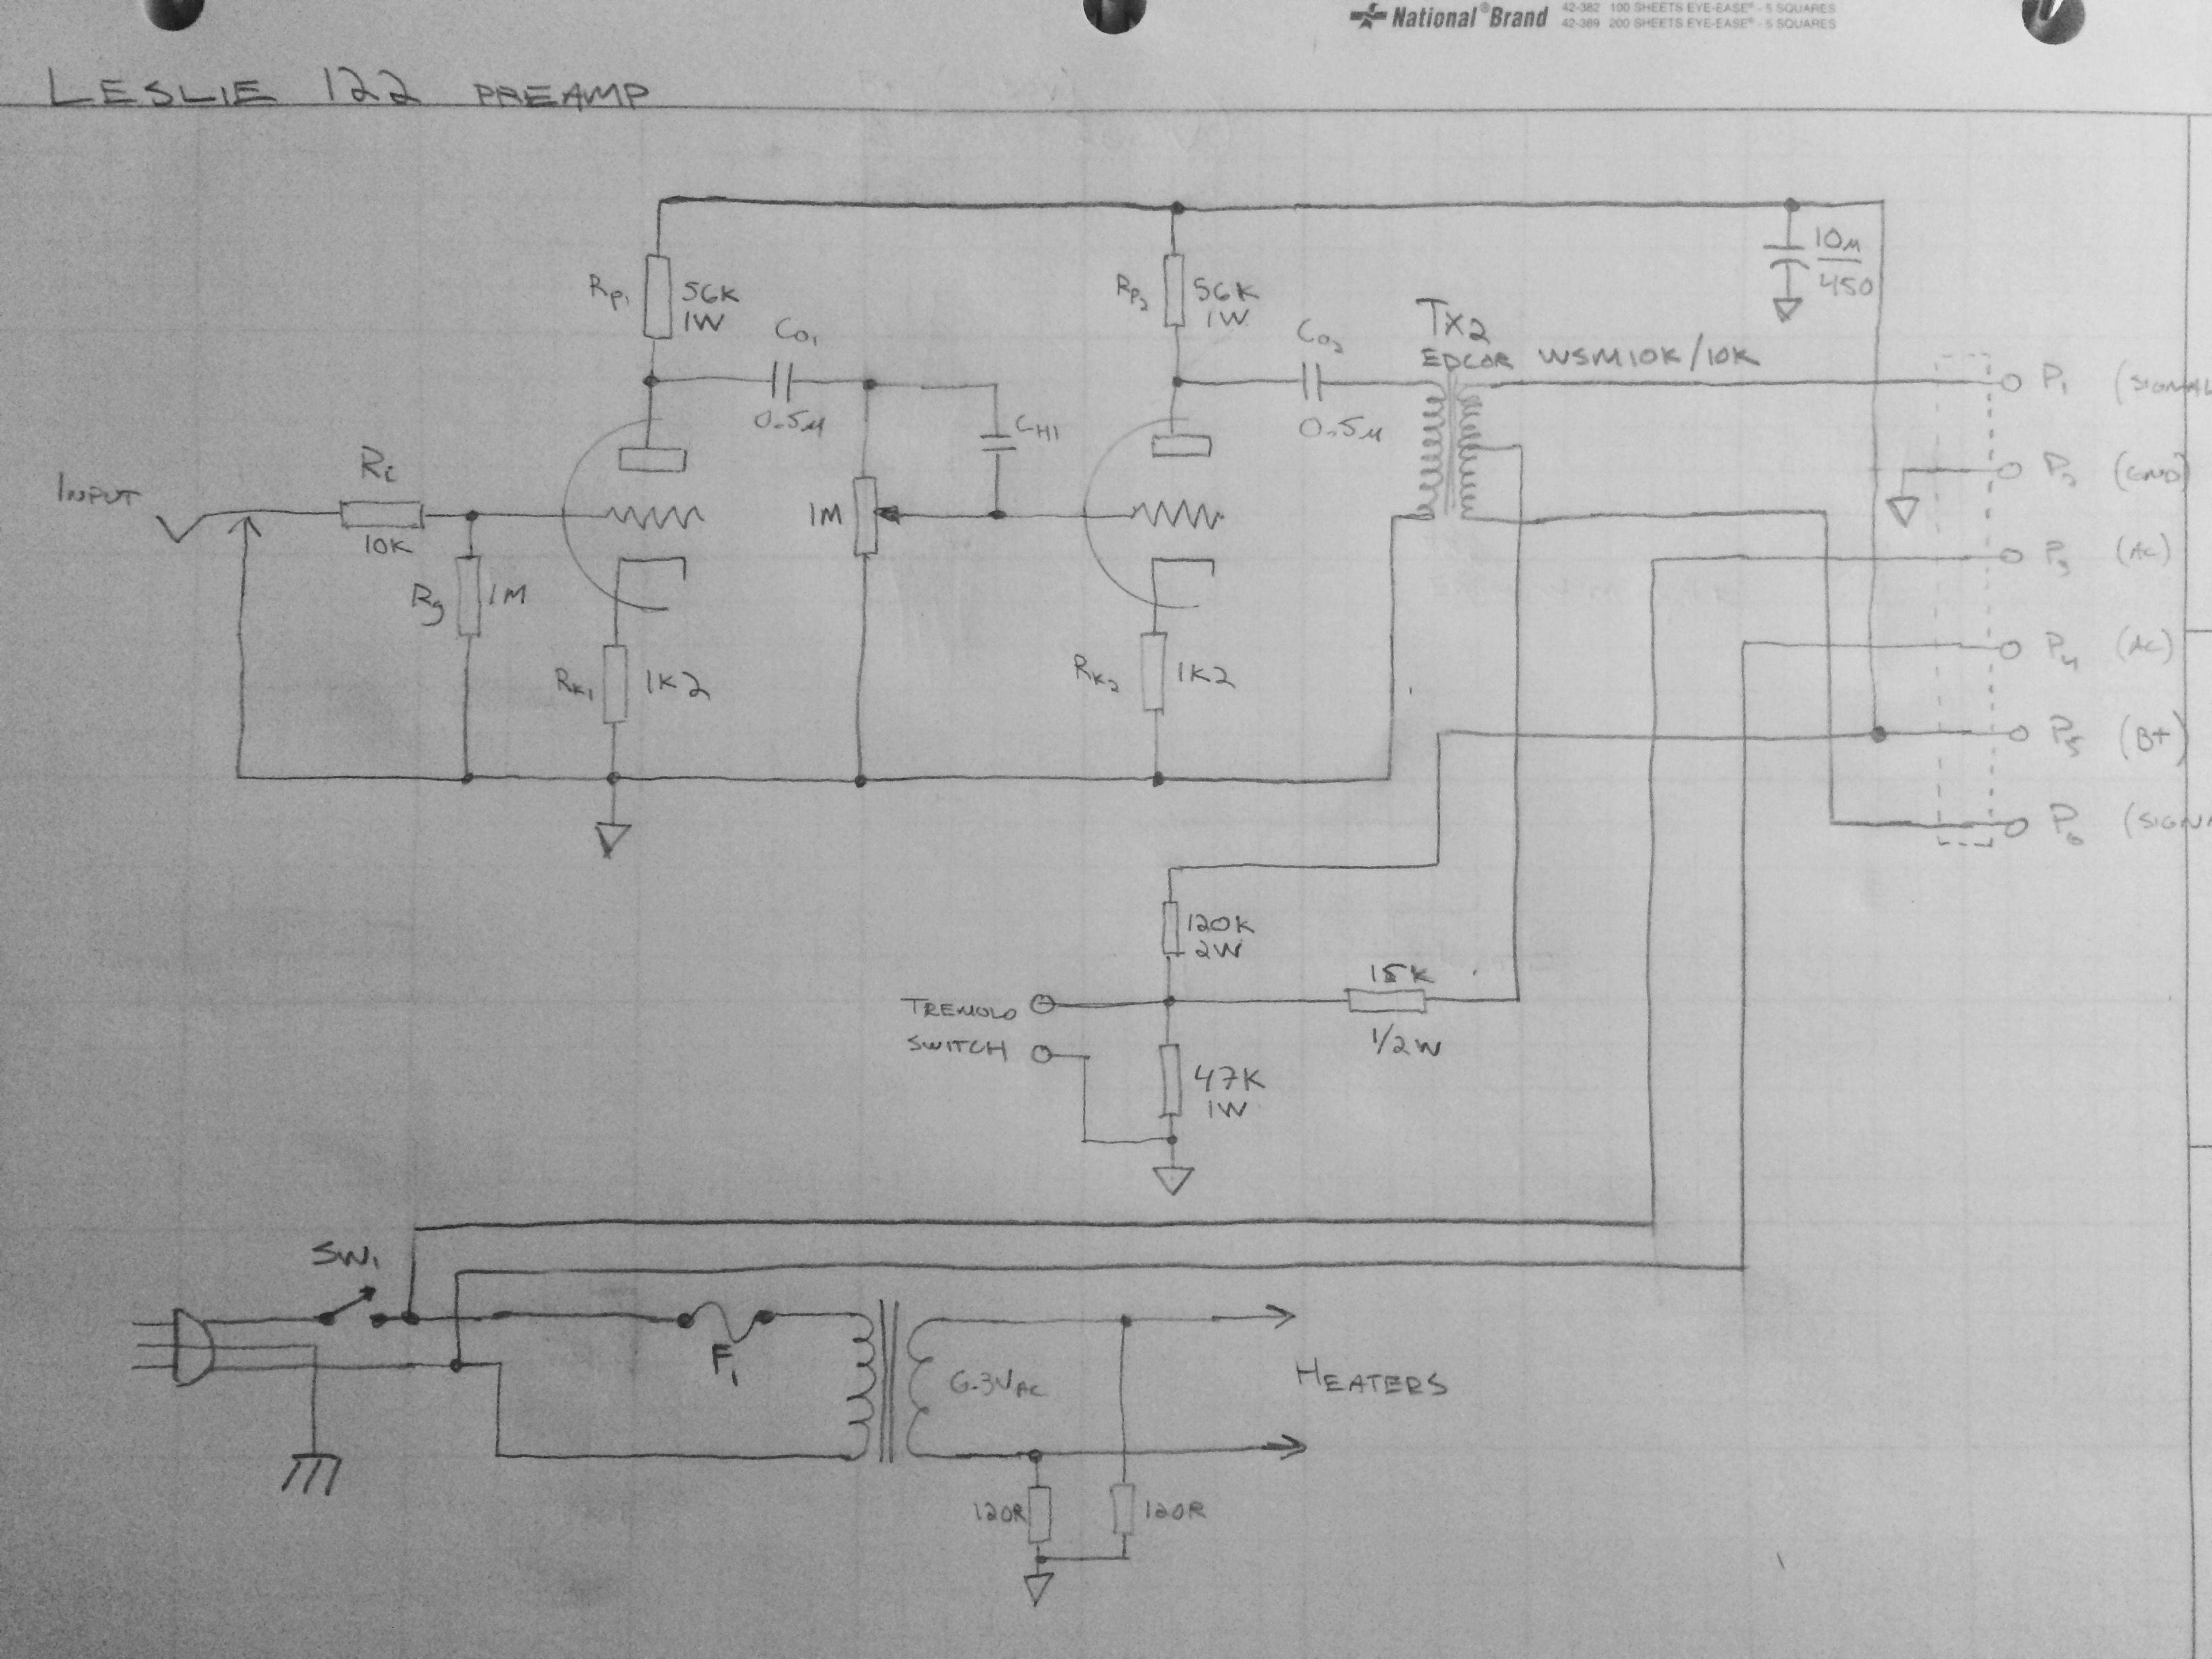 National® Brand
42-382 100 SHEETS EYE-EASE® - 5 SQUARES
42-389 200 SHEETS EYE-EASE® - 5 SQUARES
LESLIE 122 PREAMP
10μ
450
Rp1
56K
1W
Rp2
56K
1W
Co1
0.5μ
Co2
0.5μ
CHI
Tx2
EDCOR WSM10K/10K
P1
P2 (GND)
P3 (AC)
P4 (AC)
P5 (B+)
P6
INPUT
Ri
10K
Rg
1M
1M
RK1
1K2
RK2
1K2
120K
2W
15K
1/2W
TREMOLO
SWITCH
47K
1W
SW1
F1
6.3VAC
HEATERS
120R
120R